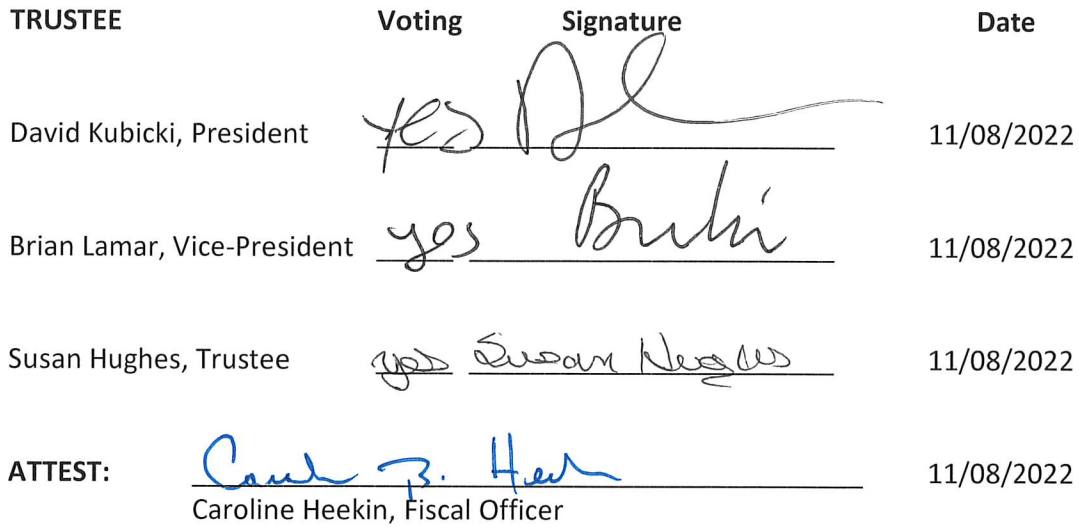 TRUSTEE Voting Signature Date
David Kubicki, President yes 11/08/2022
Brian Lamar, Vice-President yes 11/08/2022
Susan Hughes, Trustee yes Susan Hughes 11/08/2022
ATTEST: 11/08/2022
Caroline Heekin, Fiscal Officer